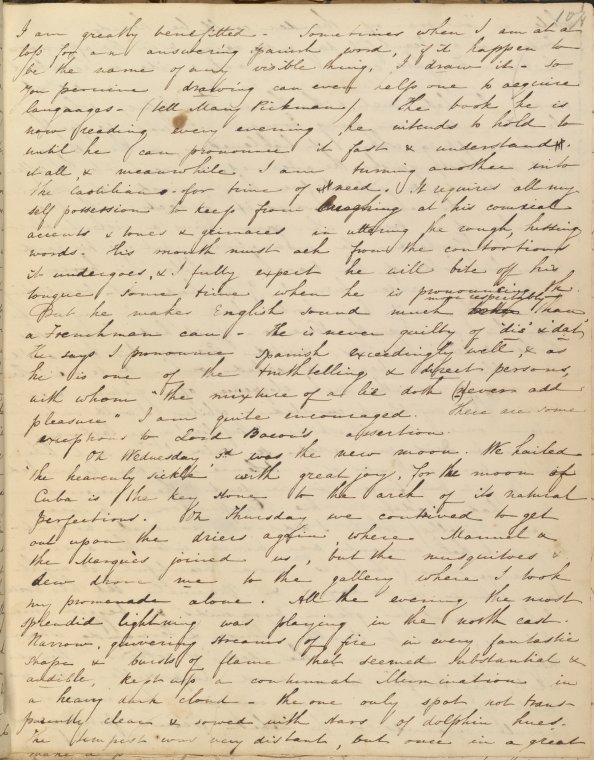 104
I am greatly benefitted - Sometimes when I am at a
loss for an answering Spanish word, if it happen to
be the name of any visible thing, I draw it - so
you perceive drawing can even help one to acquire
languages - (tell Mary Pickman) The book he is
now reading every evening he intends to hold to
until he can pronounce it fast & understand
it all, & meanwhile I am turning another into
the Castilian - for time of need. It requires all my
self possession to keep from laughing at his comical
accents & tones & grimaces in uttering the rough, hissing
words. His mouth must ach from the contortions
it undergoes, & I fully expect he will bite off his
tongue some time when he is pronouncing the.
But he makes English sound much more respectably than
a Frenchman can - He is never guilty of "dis" & "dat"
He says I pronounce Spanish exceedingly well, & as
he is one of the truthtelling & direct persons,
with whom "the mixture of a lie doth never add
pleasure" I am quite encouraged. There are some
exceptions to Lord Bacon's assertion.
On Wednesday 3d was the new moon. We hailed
"the heavenly sickle" with great joy, for the moon of
Cuba is the key stone to the arch of its natural
perfections. On Thursday we contrived to get
out upon the driers again, where Manuel &
the Marqués joined us, but the musquitoes &
dew drove me to the gallery where I took
my promenade alone. All the evening the most
splendid lightning was playing in the north east.
Narrow, quivering streams of fire in every fantastic
shape & bursts of flame that seemed substantial &
audible, kept up a continual illumination in
a heavy dark cloud - the one only spot not trans-
parently clear & sowed with stars of dolphin hues.
The tempest was very distant, but once in a great